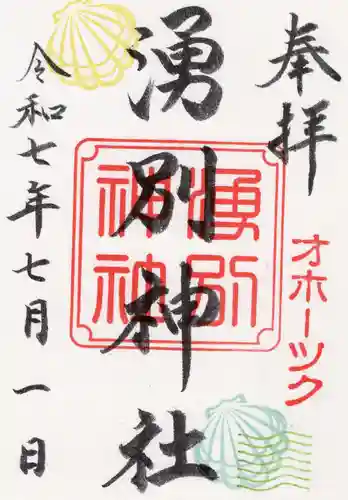 奉拝
オホーツク
湧別神社
湧別
神社
令和七年七月一日